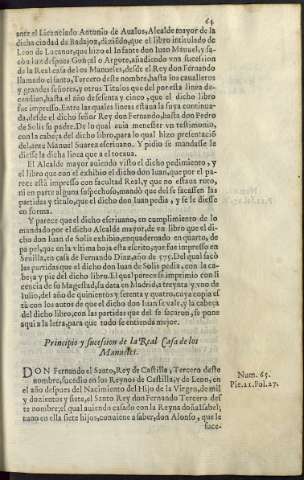 64
ante el Licenciado Antonio de Aualos, Alcalde mayor de la
dicha ciudad de Badajoz, diziẽdo, que el libro intitulado de
Conde Lucanor, que hizo el Infante don Iuan Manuel, y sa-
cò a luz despues Gonçalo Argote, añadiendo vna sucession
de la Real casa de los Manueles, desde el Rey don Fernando
llamado el santo, Tercero deste nombre, hasta los caualleros
y grandes señores, y otros Titulos que del por esta linea de-
cendian, hasta el año de setenta y cinco, que el dicho libro
fue impresso. Entre las quales lineas estaua la suya continua-
da, desde el dicho señor Rey don Fernando, hasta don Pedro
de Solis su padre. De lo qual auia menester vn testimonio,
con la cabeça del dicho libro, para lo qual hizo presentaciõ
del, ante Manuel Suarez escriuano. Y pidio se mandasse le
diesse la dicha linea que a el tocaua.
El Alcalde mayor auiendo visto el dicho pedimiento, y
el libro que con el exhibio el dicho don Iuan, que por el pa-
rece està impresso con facultad Real, y que no estaua roto,
ni en parte alguna sospechoso, mandò que del se sacassen las
partidas y titulo, que el dicho don Iuan pedia, y se le diesse
en forma.
Y parece que el dicho escriuano, en cumplimiento de lo
mandado por el dicho Alcalde mayor, de vn libro que el di-
cho don Iuan de Solis exhibio, enquadernado en quarto, de
papel, que en la vltima hoja esta escrito, que fue impresso en
Seuilla, en casa de Fernando Diaz, año de 575. Del qual sacò
las partidas que el dicho don Iuan de Solis pedia, con la ca-
beça y pie del dicho libro. El qual parece se imprimio con li-
cencia de su Magestad, su data en Madrid, a treynta y vno de
Iulio, del año de quinientos y setenta y quatro, cuya copia es
tà con los autos de que el dicho don Iuan se vale, y la cabeça
del dicho libro, con las partidas que del se sacaron, se pone
aqui a la letra, para que todo se entienda mejor.
Principio y sucession de la Real Casa de los
Manueles.
DON Fernando el Santo, Rey de Castilla, Tercero deste
nombre, sucedio en los Reynos de Castilla, y de Leon, en
el año despues del Nacimiento del Hijo de la Virgen, de mil
y dozientos y siete, el Santo Rey don Fernando Tercero des
te nombre, el qual auiendo casado con la Reyna doña Isabel,
tuuo en ella siete hijos, conuiene a saber, don Alonso, que le
suce-
Num. 65.
Pie. 21. Fol. 27.